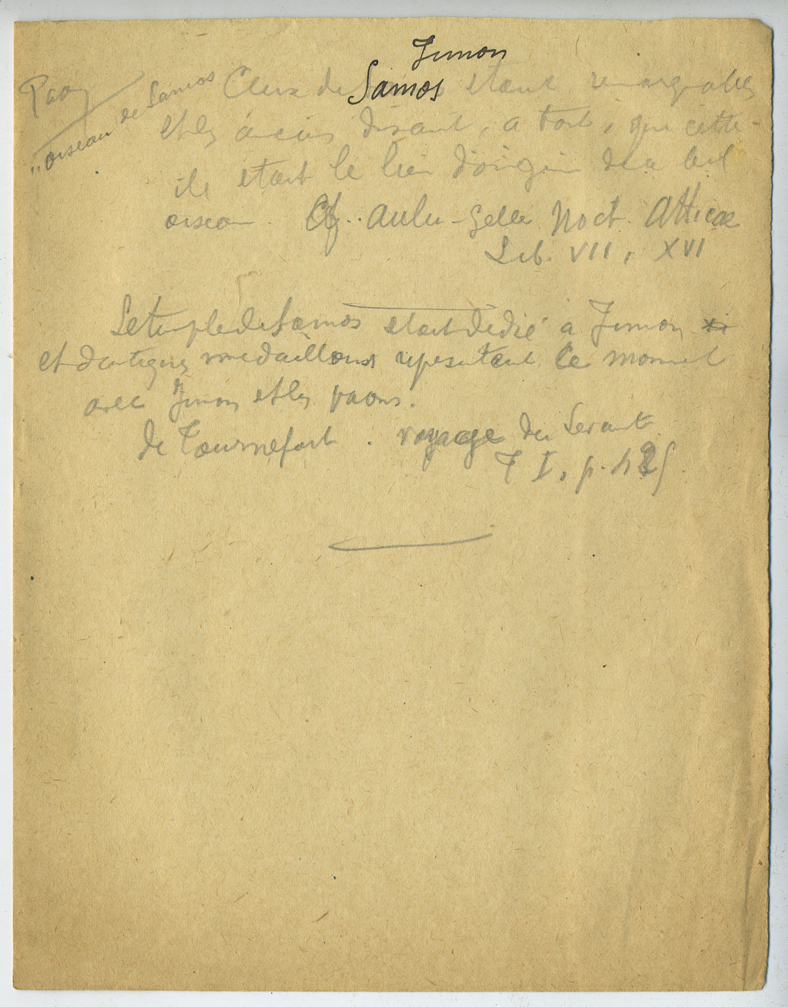 Junon
Paon
"oiseau de Samos
Ceux de Samos étaient remarquables
et les anciens disaient, à tort, que cette
île était le lieu d'origine de ce bel
oiseau. Cf. Aulu-Gelle Noct. Atticae
Lib. VII, XVI
Le temple de Samos était dédié à Junon
et d'antiques médaillons représentent ce
avec Junon et les paons.
de Tournefort. voyage du Levant
T I, p. 425